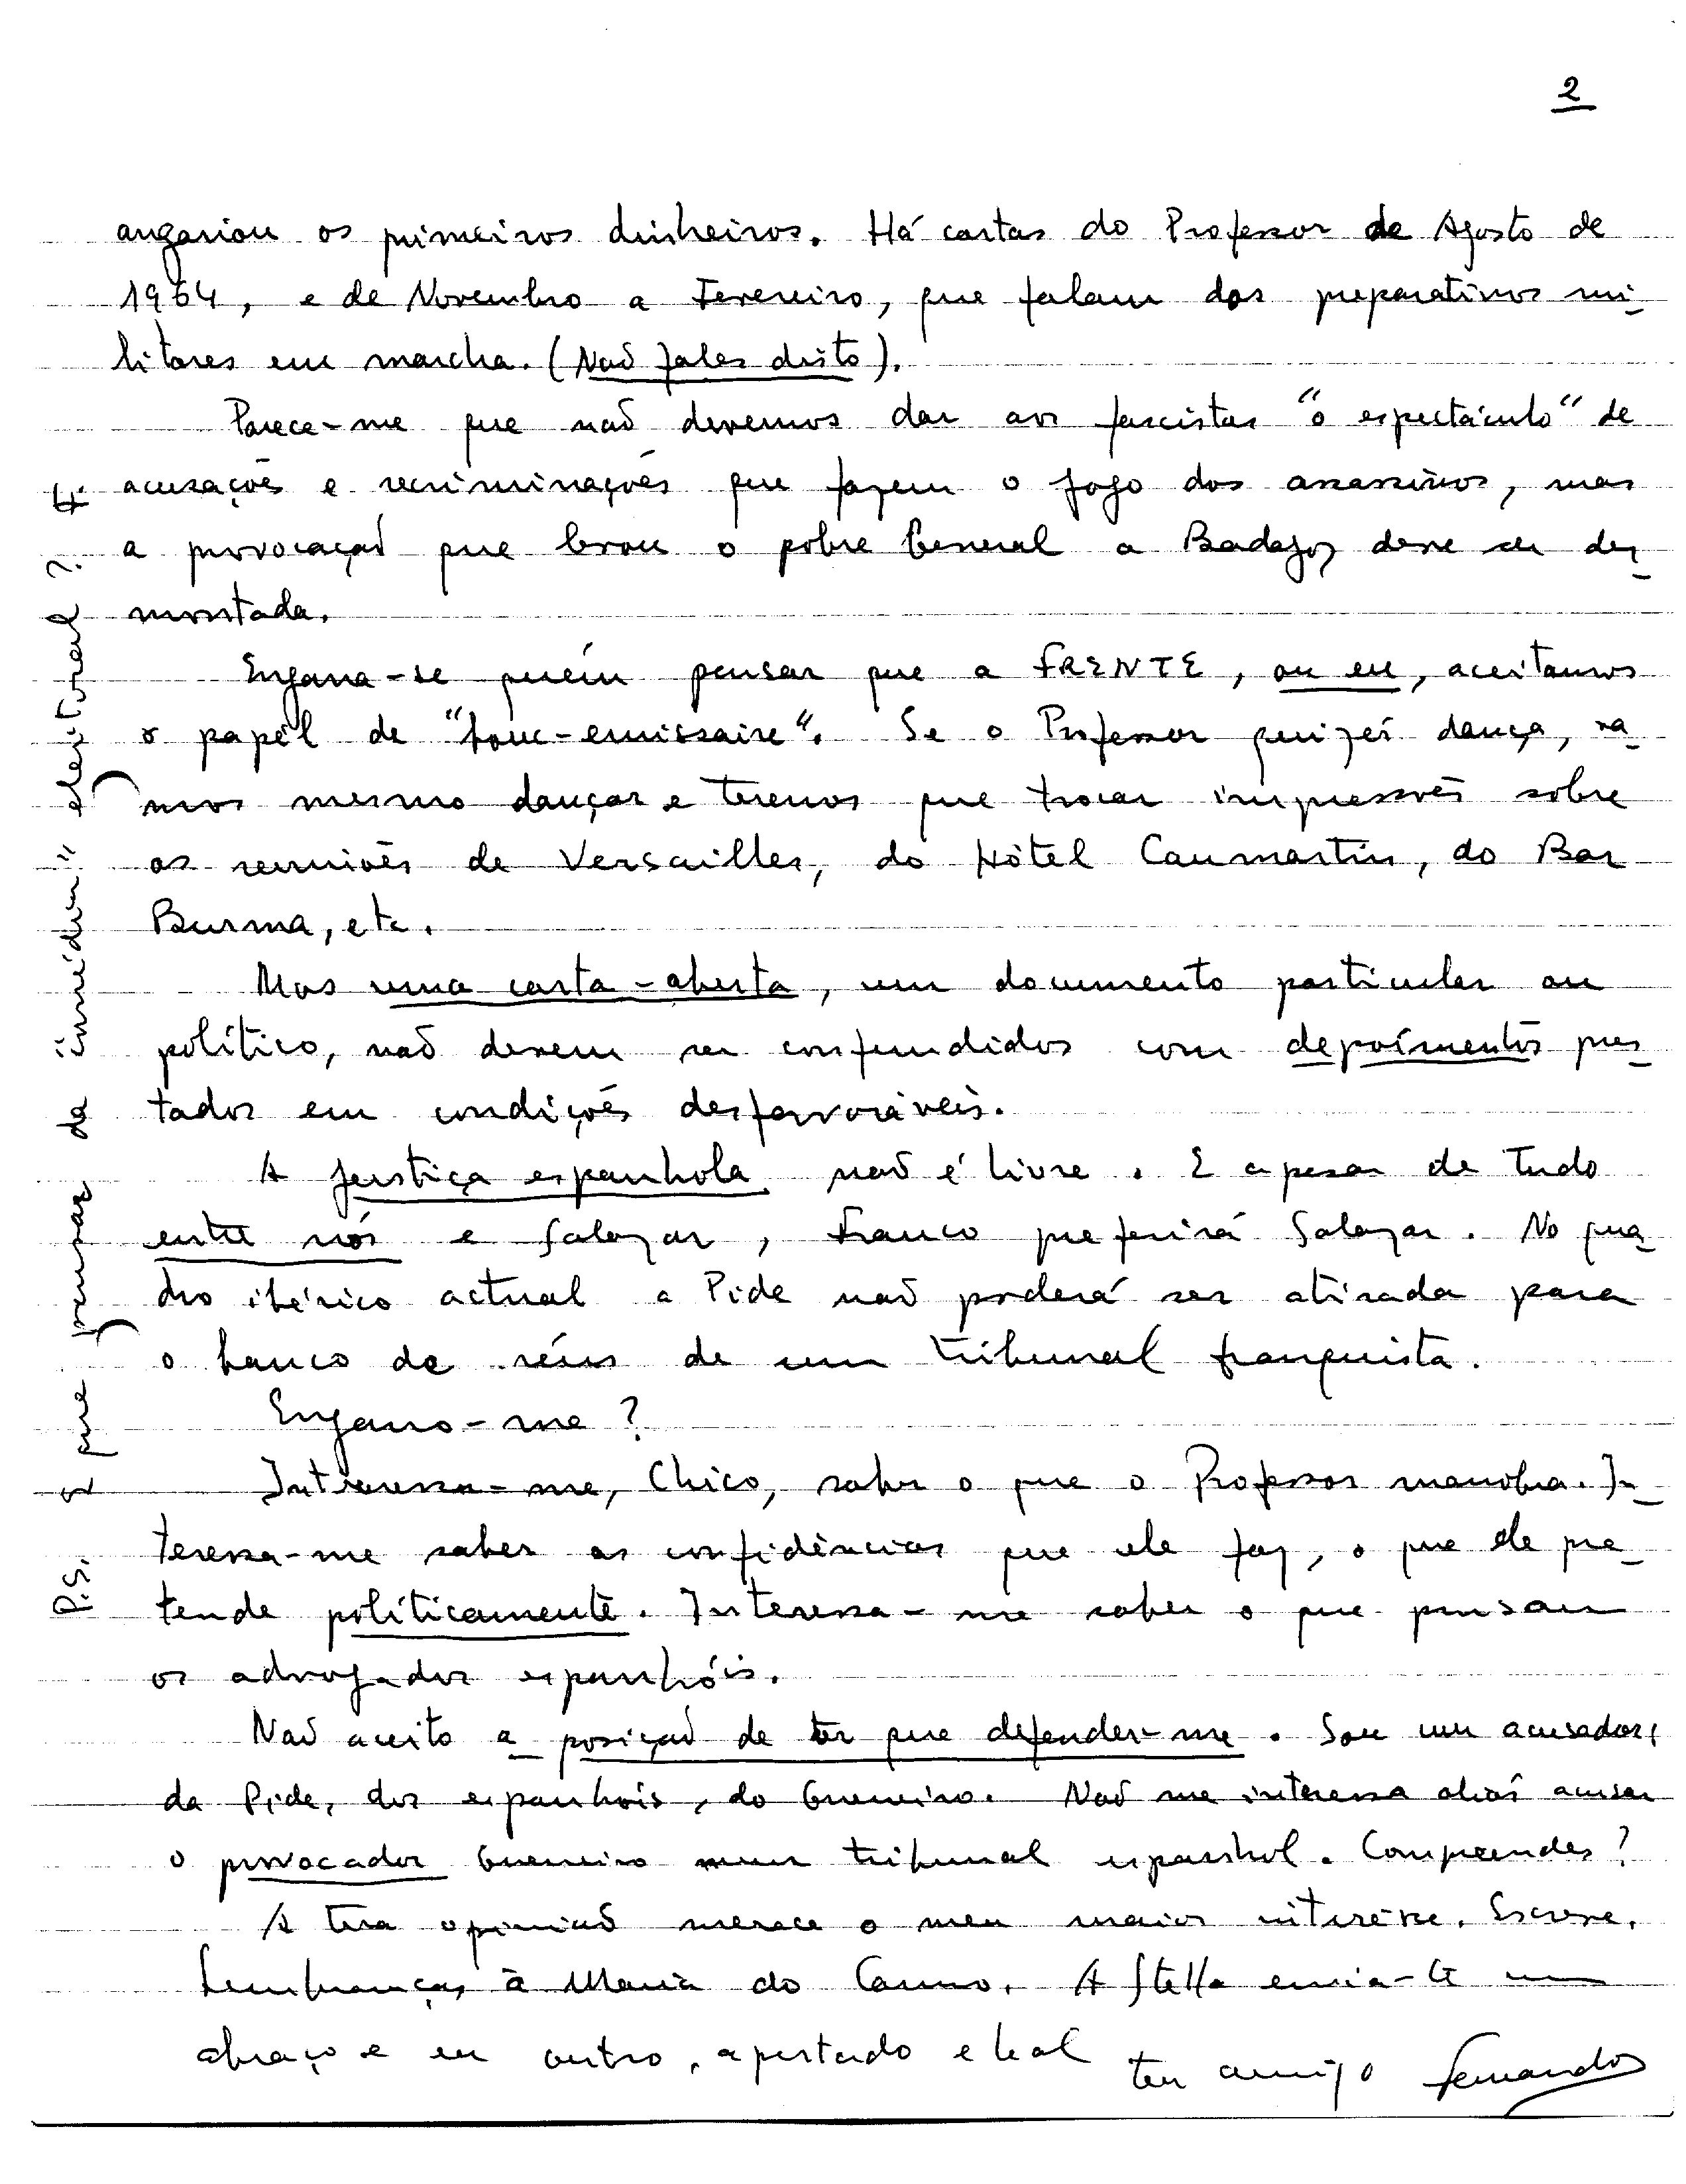 2
angariou os primeiros dinheiros. Há cartas do Professor de Agosto de
1964, e de Novembro a Fevereiro, que falam dos preparativos mi-
litares em marcha. (Não fales disto).
Parece-me que não devemos dar aos fascistas "o espectáculo" de
acusações e recriminações que fazem o jogo dos assassinos, mas
a provocação que levou o pobre General a Badajoz deve ser des-
montada.
Engana-se quem pensar que a FRENTE, ou eu, aceitamos
o papél de "bouc-emissaire". Se o Professor quizer dança, va-
mos mesmo dançar e teremos que trocar impressões sobre
as reuniões de Versailles, do Hôtel Caumartin, do Bar
Burma, etc.
Mas uma carta-aberta, um documento particular ou
político, não devem ser confundidos com depoimentos pres-
tados em condições desfavoráveis.
A justiça espanhola não é livre. E apesar de tudo
entre nós e Salazar, Franco preferirá Salazar. No qua-
dro ibérico actual a Pide não poderá ser atirada para
o banco de réus de um tribunal franquista.
Engano-me?
Interessa-me, Chico, saber o que o Professor manobra. In-
teressa-me saber as confidências que ele faz, o que ele pre-
tende políticamente. Interessa-me saber o que pensam
os advogados espanhóis.
Não aceito a posição de ter que defender-me. Sou um acusador,
da Pide, dos espanhois, do Guerreiro. Não me interessa aliás acusar
o provocador Guerreiro num tribunal espanhol. Compreendes?
A tua opinião merece o meu maior interêsse. Escreve.
Lembranças à Maria do Carmo. A Stella envia-te um
abraço e eu outro, apertado e leal
teu amigo Fernando
P.S. O que pensas da "inmédia" eleitoral?